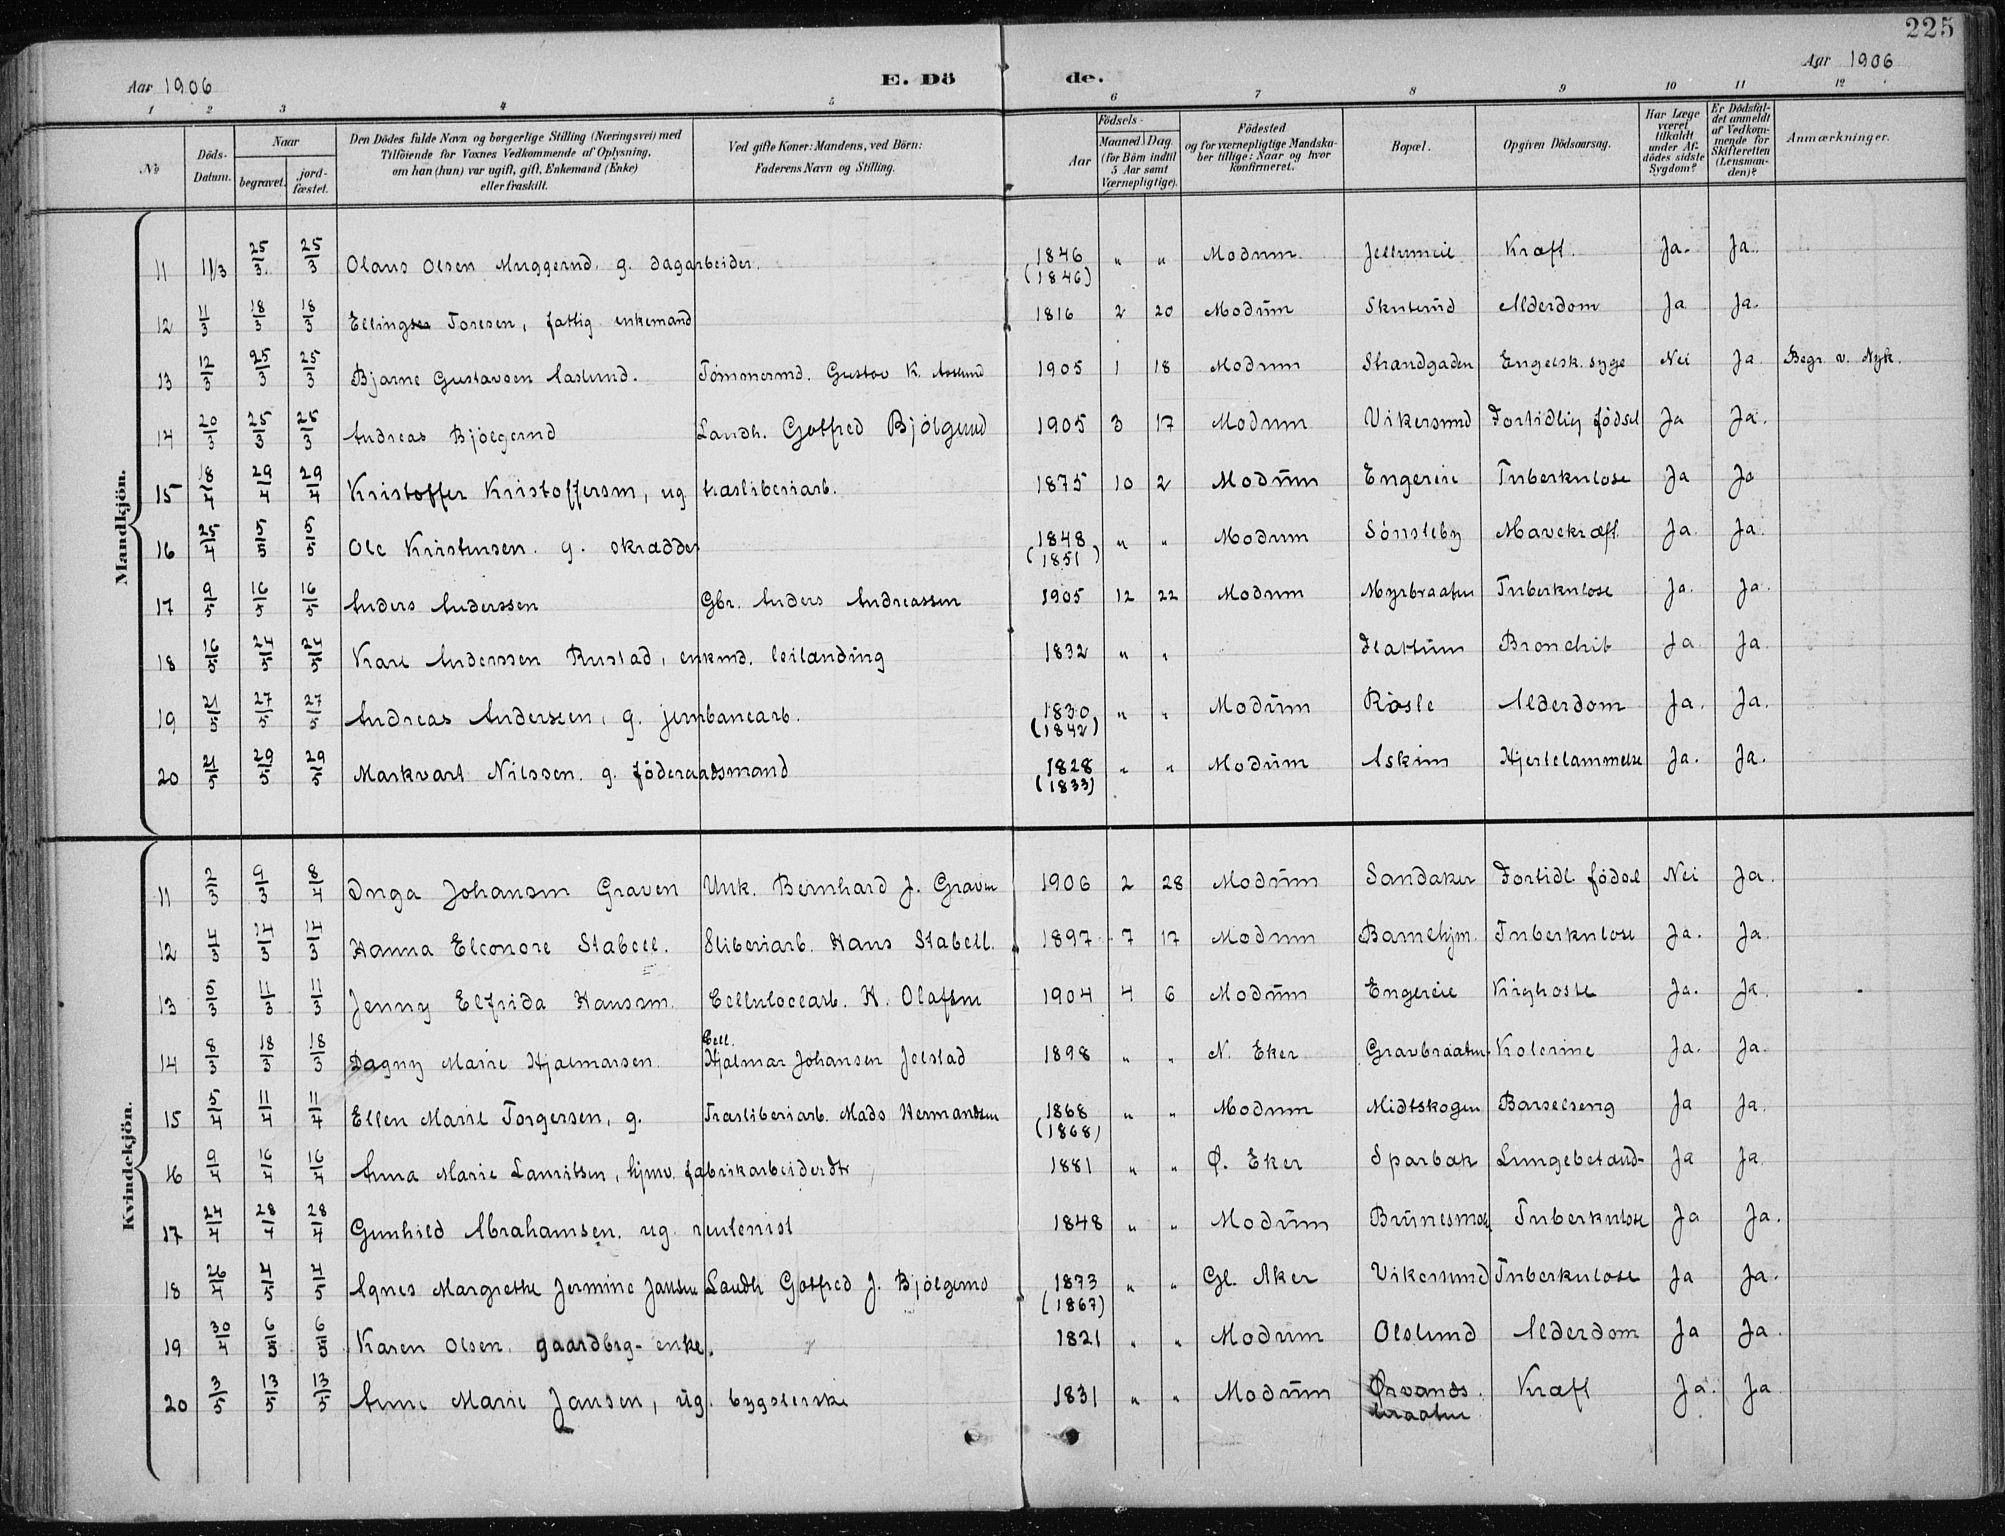 225
Aar 1906 E. Dö de. Aar 1906
1 2 3 4 5 6 7 8 9 10 11 12
No. Döds-Datum. Naar begravet. jord-fæstet. Den Dödes fulde Navn og borgerlige Stilling (Næringsvei) med Tilföiende for Voxnes Vedkommende af Oplysning, om han (hun) var ugift, gift, Enkemand (Enke) eller fraskilt. Ved gifte Koner: Mandens, ved Börn: Faderens Navn og Stilling. Födsels- Aar Maaned. Dag. (for Börn indtil 5 Aar samt Værnepligtige). Födested og for værnepligtige Mandska-ber tillige: Naar og hvor konfirmeret. Bopæl. Opgiven Dödsaarsag. Har Læge været tilkaldt under Af-dödes sidste Sygdom? Er Dödsfal-det anmeldt af Vedkom-mende for Skifteretten (Lensman-den)? Anmærkninger.
Mandkjön.
11 11/3 25/3 25/3 Olaus Olsen Muggerud. g. dagarbeider. 1846 (1846) " " Modum Jellumeie Kræft. Ja. Ja.
12 11/3 18/3 18/3 Elling Toresen, fattig enkemand 1816 2 20 Modum Skuterud Alderdom Ja Ja.
13 12/3 25/3 25/3 Bjarne Gustavsen Aaslund. Tømmermd. Gustav K. Aaslund 1905 1 18 Modum Strandgaden Engelsk. syge Nei Ja Begr. v. Nyk.
14 20/3 25/3 25/3 Andreas Bjölgerud Landh. Gotfred Bjölgerud 1905 3 17 Modum Vikersund Fortidlig fødsel Ja Ja.
15 18/4 29/4 29/4 Kristoffer Kristoffersen, ug træsliberiarb. 1875 10 2 Modum Engereie Tuberkulose Ja Ja
16 25/4 5/5 5/5 Ole Kristensen. g. skrædder 1848 (1851) " " Modum Sønsteby Mavekræft Ja. Ja.
17 9/5 16/5 16/5 Anders Anderssen Gbr. Anders Andreassen 1905 12 22 Modum Myrbraaten Tuberkulose Ja. Ja.
18 16/5 24/5 24/5 Karl Anderssen Rustad, enkmd. leilænding 1832 " " Flattum Bronchit Ja Ja.
19 21/5 27/5 27/5 Andreas Anderssen, g. jernbanearb. 1830 (1842) " " Modum Kåsle Alderdom Ja. Ja.
20 21/5 29/5 29/5 Markvart Nilssen. g. föderaadsmand 1828 (1833) " " Modum Askim Hjertelammelse Ja. Ja.
Kvindekjön.
11 2/3 9/3 8/4 Inga Johansen Graven Unk. Bernhard J. Graven 1906 2 28 Modum Sandaker Fortidl fødsel Nei Ja.
12 4/3 14/3 14/3 Hanna Eleonore Stabell. Sliberiarb. Hans Stabell. 1897 7 17 Modum Barnehjm. Tuberkulose Ja. Ja.
13 5/3 11/3 11/3 Jenny Elfrida Hanssen. Cellulosearb. H. Olafsen 1904 4 6 Modum Engereie Kighoste Ja. Ja.
14 8/3 18/3 18/3 Dagny Marie Hjalmarsen. Cell. Hjalmar Johansen Jelstad 1898 " " N. Eker Gravbraaten Kolerine Ja. Ja.
15 5/4 11/4 11/4 Ellen Marie Torgersen, g. Træsliberiarb. Mads Hermandsen 1868 (1868) " " Modum Midtskogen Barselseng Ja Ja.
16 9/4 16/4 16/4 Anna Marie Lauritsen, hjmv. fabrikarbeiderdtr 1881 " " Ø. Eker Sparbak Lungebetænd- Ja Ja.
17 24/4 28/4 28/4 Gunhild Abrahamsen. ug. rentenist 1848 " " Modum Tuberkulose Ja Ja.
18 26/4 4/5 4/5 Agnes Margrethe Jermine Jansen Landh Gotfred J. Bjölgerud 1873 (1867) " " Gl. Aker Vikersund Tuberkulose Ja Ja.
19 30/4 6/5 6/5 Karen Olsen. gaardbrg-enke. 1821 " " Modum Olslund Alderdom Ja Ja.
20 3/5 13/5 13/5 Anne Marie Jansen, ug. bygslerske 1831 " " Modum Ørvands. braaten Kræft Ja. Ja